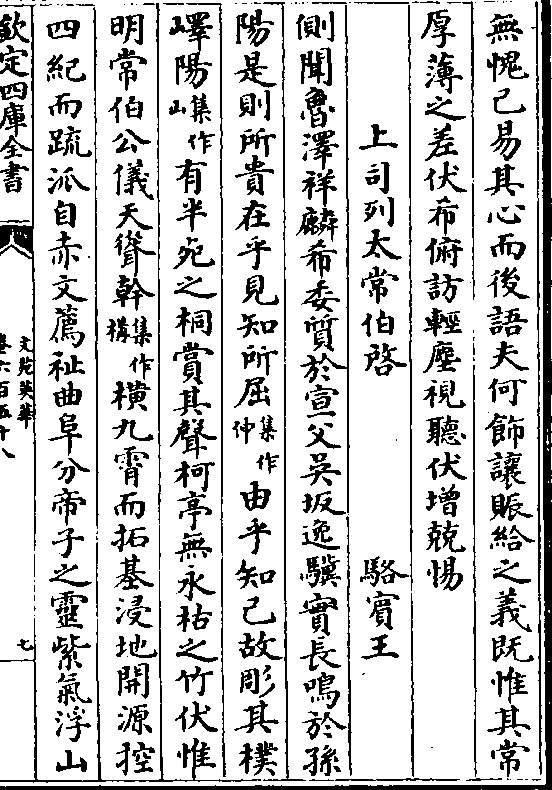 無愧己易其心而後語夫何飾讓賑給之義既惟其常
厚薄之差伏希俯訪輕塵視聽伏增兢惕
上司列太常伯啓　駱賓王
側聞魯澤祥麟希委質於宣父吳坂逸驥實長鳴於孫
陽是則所貴在乎見知所屈集作伸由乎知己故彫其樸
嶧陽集作山有半死之桐賞其聲柯亭無永枯之竹伏惟
明常伯公儀天聳幹集作構橫九霄而拓基浸地開源控
四紀而疏派自赤文薦祉曲阜分帝子之靈紫氣浮山
欽定四庫全書
文苑英華
卷六百五十八
七